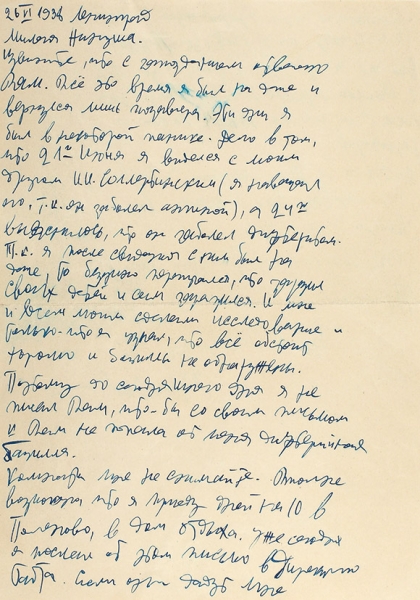 26 VI 1938 Ленинград
Милая Нинуша.
Извините, что с запозданием отвечаю
Вам. Всё это время я был на даче и
вернулся лишь позавчера. Эти дни я
был в некоторой панике. Дело в том,
что 21го Июня я виделся с моим
другом И.И. Соллертинским (я навещал
его, т.к. он заболел ангиной), а 24го
выяснилось, что он заболел дифтеритом.
Т.к. я после свидания с ним был на
даче, то безумно перепугался, что заразил
своих детей и сам заразился. И мне
и всем моим сделали исследование и
только-что я узнал, что всё обстоит
хорошо и бациллы не обнаружены.
Поэтому до сегодняшнего дня я не
писал Вам, что-бы со своим письмом
и Вам не попала от меня дифтерийная
бацилла.
Комнаты мне не снимайте. Вполне
возможно что я приеду дней на 10 в
в дом отдыха. Уже сегодня
я послал об этом письмо в Дирекцию
Если они дадут мне